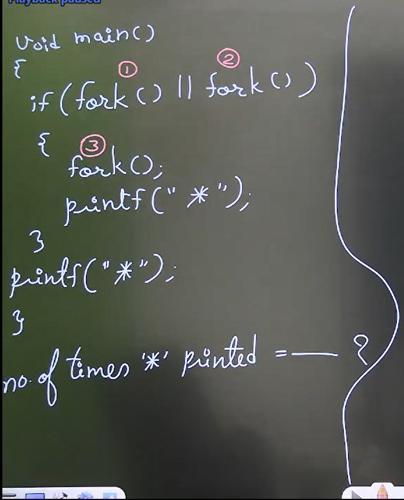 Playback paused
void main()
{
① ②
if (fork() || fork())
{
③
fork();
printf("*");
}
printf("*");
}
no. of times '*' printed = —— ?